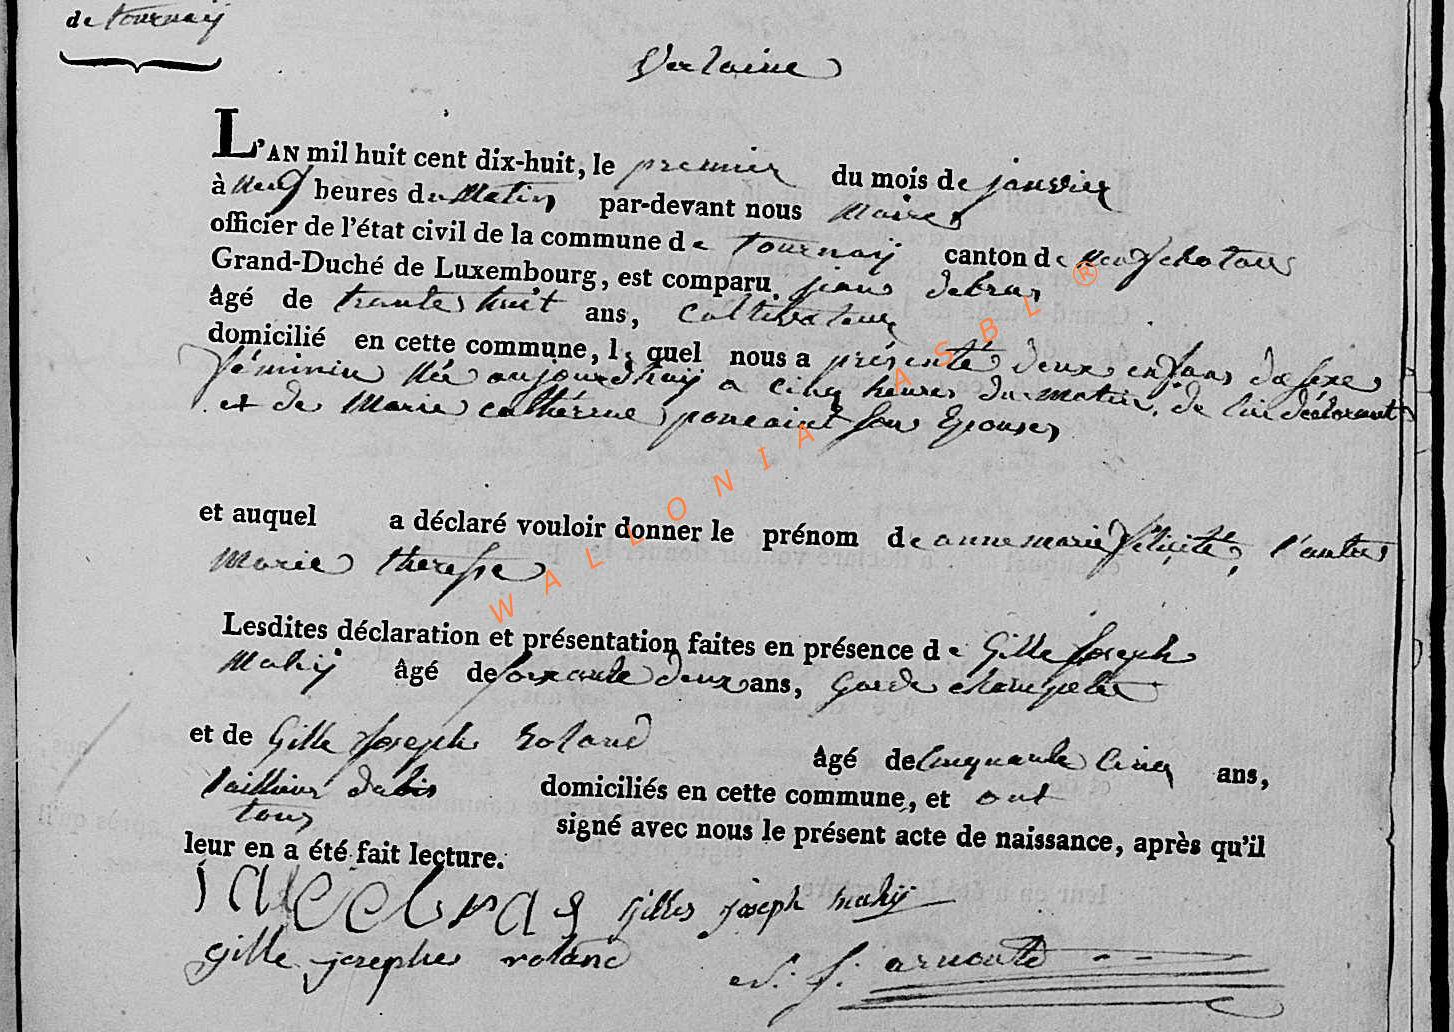 de tournaÿ
Verlaine
L'AN mil huit cent dix-huit, le premier du mois de janvier
à neuf heures du Matin par-devant nous Maire
officier de l'état civil de la commune de tournaÿ canton de neufchatau
Grand-Duché de Luxembourg, est comparu jean debras
âgé de trante huit ans, Cultivateur
domicilié en cette commune, lequel nous a présenté deux enfans de sexe
féminin née aujourdhuÿ a cinq heures du matin, de lui déclarant
et de Marie cathérine poncaint son Epouse
et auquel a déclaré vouloir donner le prénom de anne marie félicité, l'autre
Marie therese
Lesdites déclaration et présentation faites en présence de Gille Joseph
Mahÿ âgé de soixante deux ans, Garde champetre
et de Gille Joseph Roland âgé de Cinquante Cinq ans,
tailleur dabis domiciliés en cette commune, et ont
tous signé avec nous le présent acte de naissance, après qu'il
leur en a été fait lecture.
gilles joseph mahÿ
gille josephe roland
arnould
WALLONIA ASBL ®